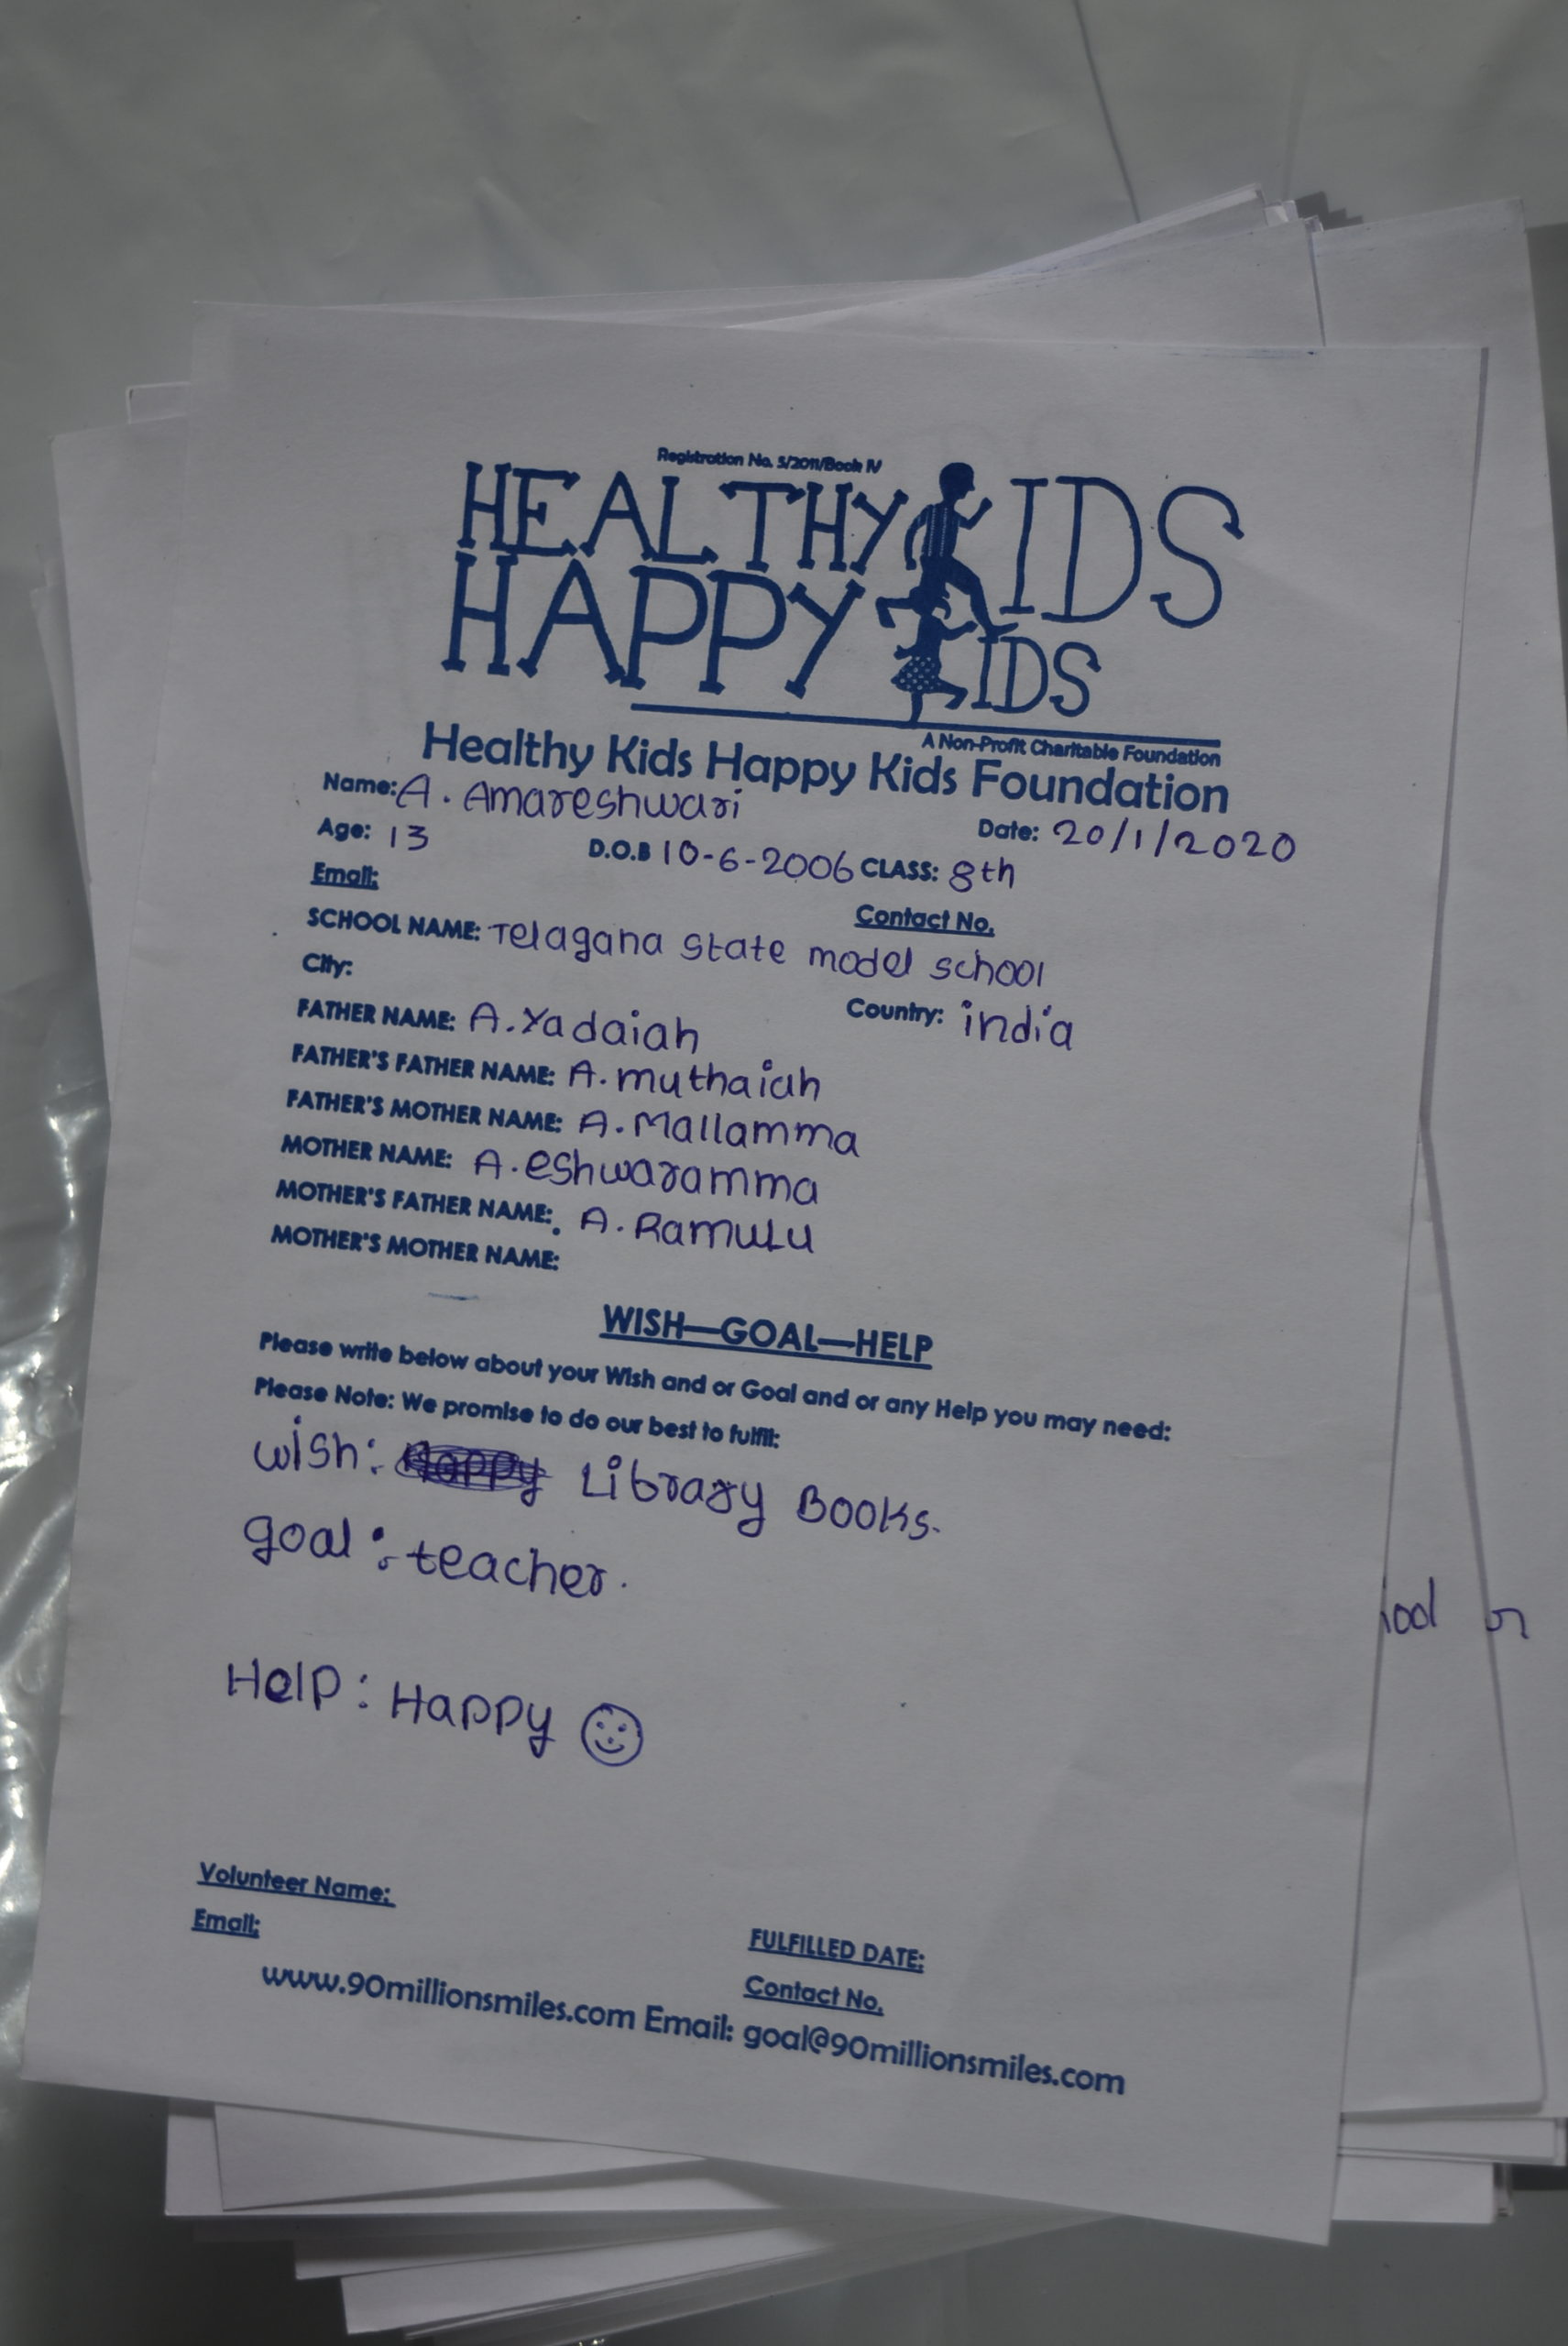 Registration No. 5/2011/Book IV
HEALTHY KIDS
HAPPY KIDS
A Non-Profit Charitable Foundation
Healthy Kids Happy Kids Foundation
Name: A. Amareshwari
Date: 20/1/2020
Age: 13 D.O.B 10-6-2006 CLASS: 8th
Email:
Contact No.
SCHOOL NAME: Telagana state model school
City:
Country: india
FATHER NAME: A. Yadaiah
FATHER'S FATHER NAME: A. muthaiah
FATHER'S MOTHER NAME: A. Mallamma
MOTHER NAME: A. eshwaramma
MOTHER'S FATHER NAME: A. Ramulu
MOTHER'S MOTHER NAME:
WISH—GOAL—HELP
Please write below about your Wish and or Goal and or any Help you may need:
Please Note: We promise to do our best to fulfil:
wish: Happy Library Books.
goal: teacher.
Help: Happy
Volunteer Name:
Email:
FULFILLED DATE:
Contact No.
www.90millionsmiles.com Email: goal@90millionsmiles.com